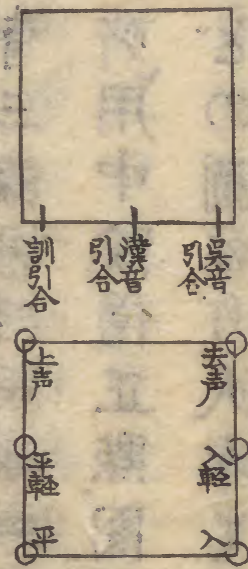 呉音引合
漢音引合
訓引合
去声
入軽
入
上声
平軽
平